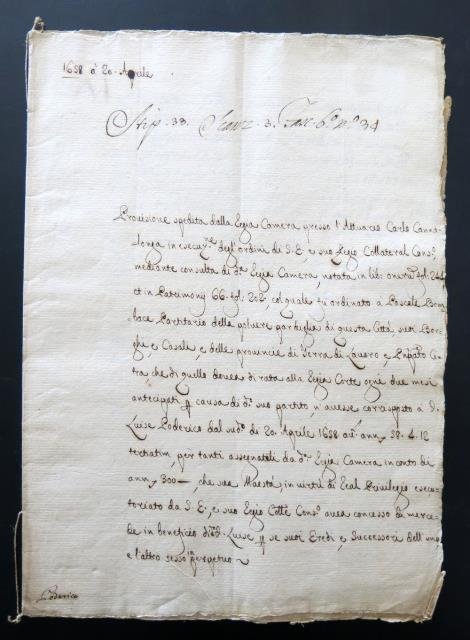 1698 à 20. Aprile
Stip. 33. Scanz. 3. Fasc. 6.º n.º 34
Provisione spedita dalla Regia Camera presso l'Attuario Carlo Canna-
longa in esecuz.ne degl'ordini di S.E. e suo Regio Collateral Cons.º
mediante consulta di d.ª Regia Camera, notata in lib: fol. 244
et in Patrimony 66. fol. 202, col quale fu ordinato a Pascale
Partitario della polvere di questa Città, suoi Bor-
ghi, e Casali, e delle provincie di Terra di Lavoro, e Prîpato Ci-
tra che di quello doveva di rata alla Regia Corte ogni due mesi
anticipati p causa di d.º suo partito n'avesse corrisposto a D.
Luise Loderico dal sud.º dì 20. Aprile 1698 ann. 98. 4. 12
tertiatim, per tanti assegnatili da d.ª Regia Camera in conto di
ann. 300—, che sua Maestà, in virtù di Real Privilegio eseco-
toriato da S.E. e suo Regio Coll.e Cons.º avea concesso di merce-
de in beneficio di d. Luise p se suoi Eredi, e Successori dell'uno
e l'altro sesso in perpetuo
Loderico